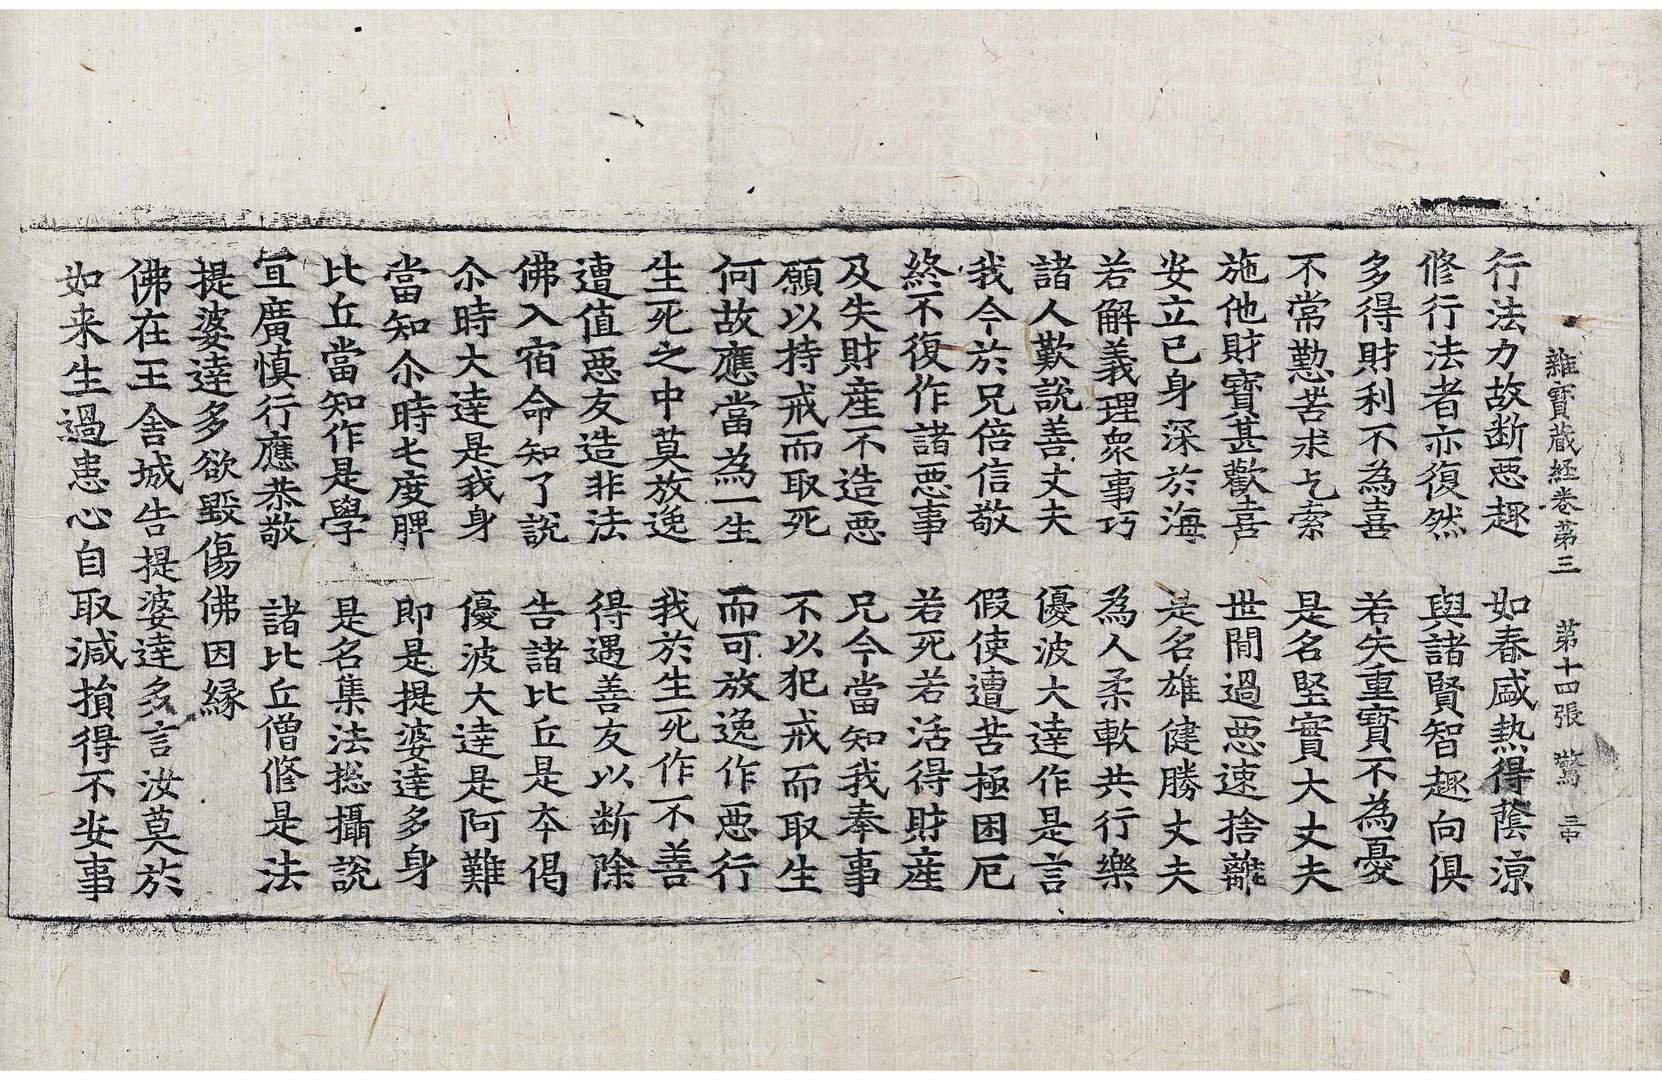 雜寶蔵經卷第三　第十四張　驚
行法力故断惡趣　如春盛熱得蔭涼
修行法者亦復然　與諸賢智趣向俱
多得財利不為喜　若失重寳不為憂
不常懃苦求乞索　是名堅實大丈夫
施他財寳甚歡喜　世間過惡速捨離
安立己身深於海　是名雄健勝丈夫
若解義理衆事巧　為人柔軟共行樂
諸人歎說善丈夫　優波大達作是言
我今於兄倍信敬　假使遭苦極困厄
終不復作諸惡事　若死若活得財産
及失財産不造惡　兄今當知我奉事
願以持戒而取死　不以犯戒而取生
何故應當為一生　而可放逸作惡行
生死之中莫放逸　我於生死作不善
遭值惡友造非法　得遇善友以断除
佛入宿命知了說　告諸比丘是夲偈
尒時大達是我身　優波大達是阿難
當知尒時七度脾　即是提婆達多身
比丘當知作是學　是名集法揔攝說
宜廣慎行應恭敬　諸比丘僧修是法
提婆達多欲毀傷佛因緣
佛在王舍城告提婆達多言汝莫於
如来生過患心自取減損得不安事